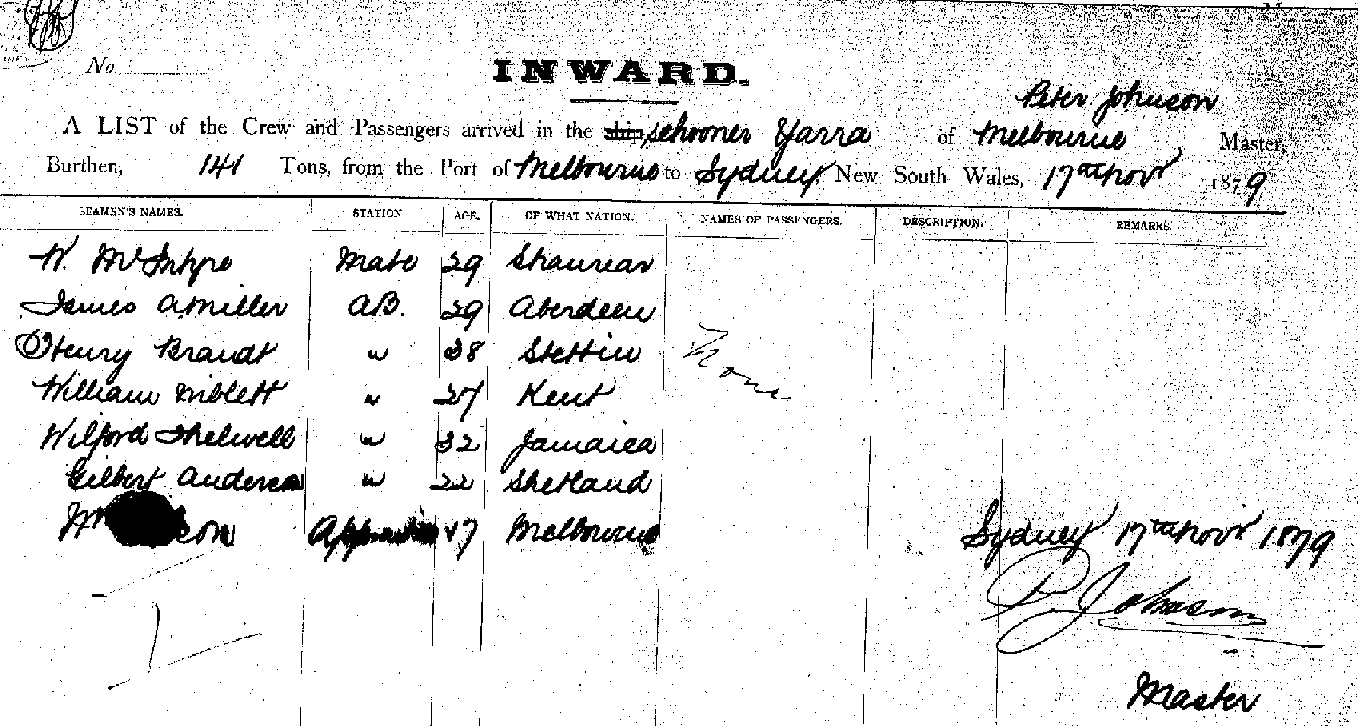 No
INWARD.
Peter Johnson
A LIST of the Crew and Passengers arrived in the ship, schooner Yarra of Melbourne, Master,
Burthen, 141 Tons, from the Port of Melbourne to Sydney, New South Wales, 17th Novr 1879
SEAMEN'S NAMES. STATION AGE. OF WHAT NATION. NAMES OF PASSENGERS. DESCRIPTION. REMARKS.
W. McIntyre Mate 29
James A Miller A.B. 29 Aberdeen
Henry Brandt " 38 Stettin None
William Niblett " 27 Kent
Wilford Thelwell " 32 Jamaica
Gilbert Anderson " 22 Shetland
17 Melbourne
Sydney 17th Novr 1879
P. Johnson
Master